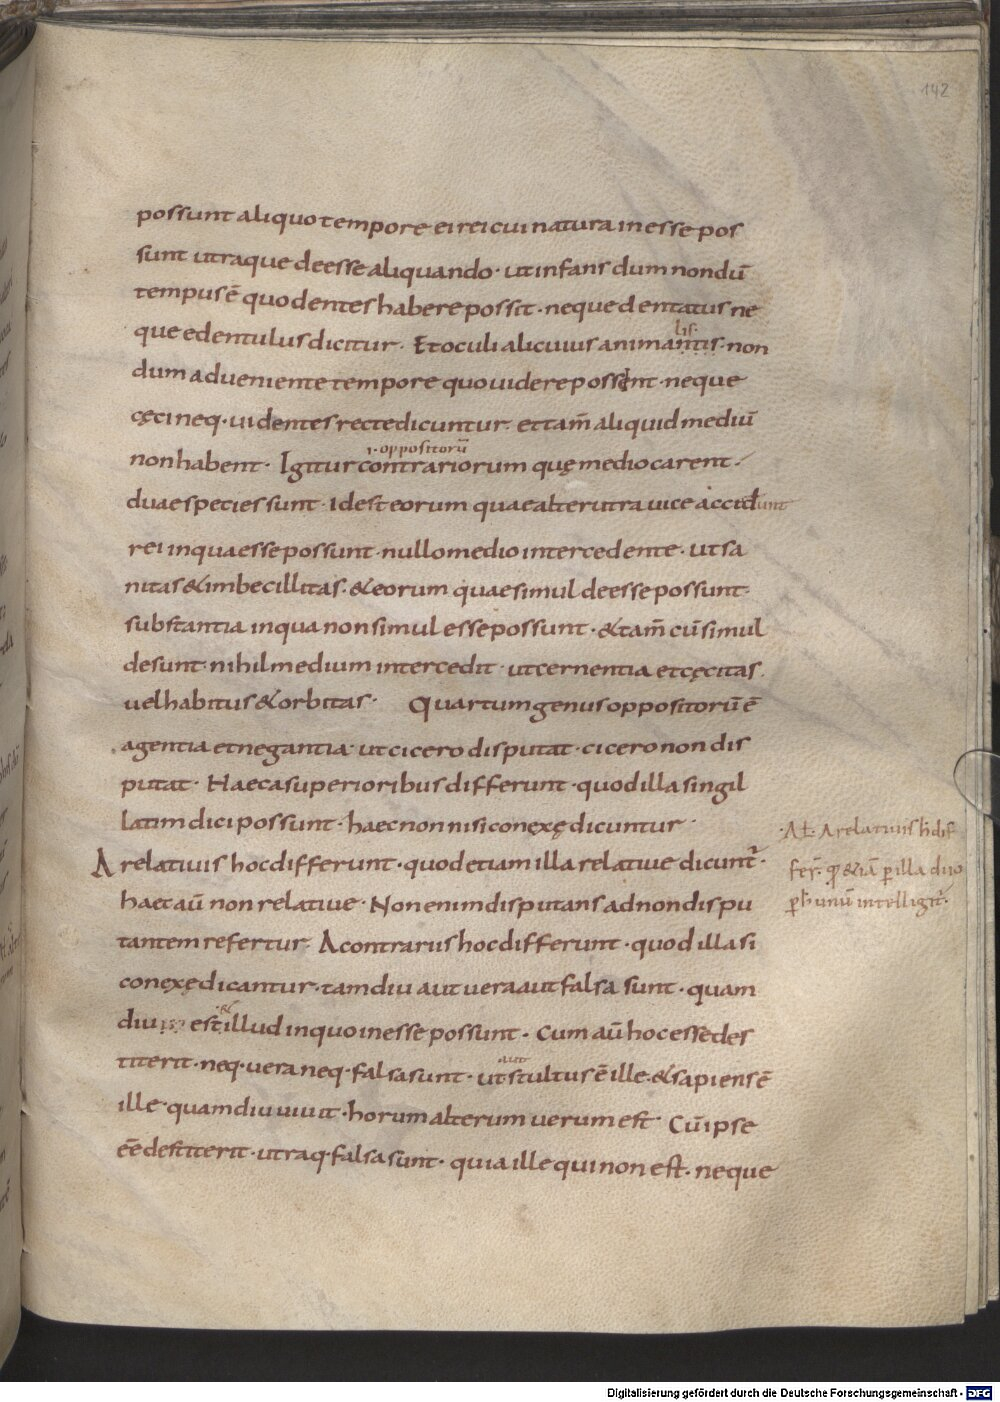 142
possunt aliquo tempore ei rei cui natura inesse pos
sunt utraque deesse aliquando · ut infans dum nondū
tempus ē quo dentes habere possit · neque dentatus ne
lis·
que edentulus dicitur · Et oculi alicuius animantis · non
dum adueniente tempore quo uidere possint · neque
cęci neq· uidentes recte dicuntur · et tam̄ aliquid mediū
·i· oppositorū
non habent · Igitur contrariorum quę medio carent ·
duae species sunt · Id est eorum quae alterutra uice accidunt
rei in qua esse possunt · nullo medio intercedente · ut sa
nitas & imbecillitas · & eorum quae simul deesse possunt
substantia in qua non simul esse possunt · & tam̄ cū simul
desunt · nihil medium intercedit · ut cernentia et cęcitas ·
uel habitus & orbitas · Quartum genus oppositorū ē
agentia et negantia · ut cicero disputat · cicero non dis
putat · Haec a superioribus differunt · quod illa singil
latim dici possunt · haec non nisi conexę dicuntur ·
A relatiuis hoc differunt · quod etiam illa relatiue dicunt̄ ·
haec aū non relatiue · Non enim disputans ad non dispu
tantem refertur · A contrariis hoc differunt · quod illa si
conexę dicantur · tamdiu aut uera aut falsa sunt · quam
&
diu est illud in quo inesse possunt · Cum aū hoc esse des
titerit · neq· uera neq· falsa sunt ·
aut
ut stultus ē ille · & sapiens ē
ille · quamdiu uiuit · horum alterum uerum est · Cū ipse
ēē destiterit · utraq· falsa sunt · quia ille qui non est · neque
·Aƚ· A relatiuis h̄ dif
fer̄ · qđ &iā ꝑ illa duo
unū intelligit̄ ·
Digitalisierung gefördert durch die Deutsche Forschungsgemeinschaft · DFG